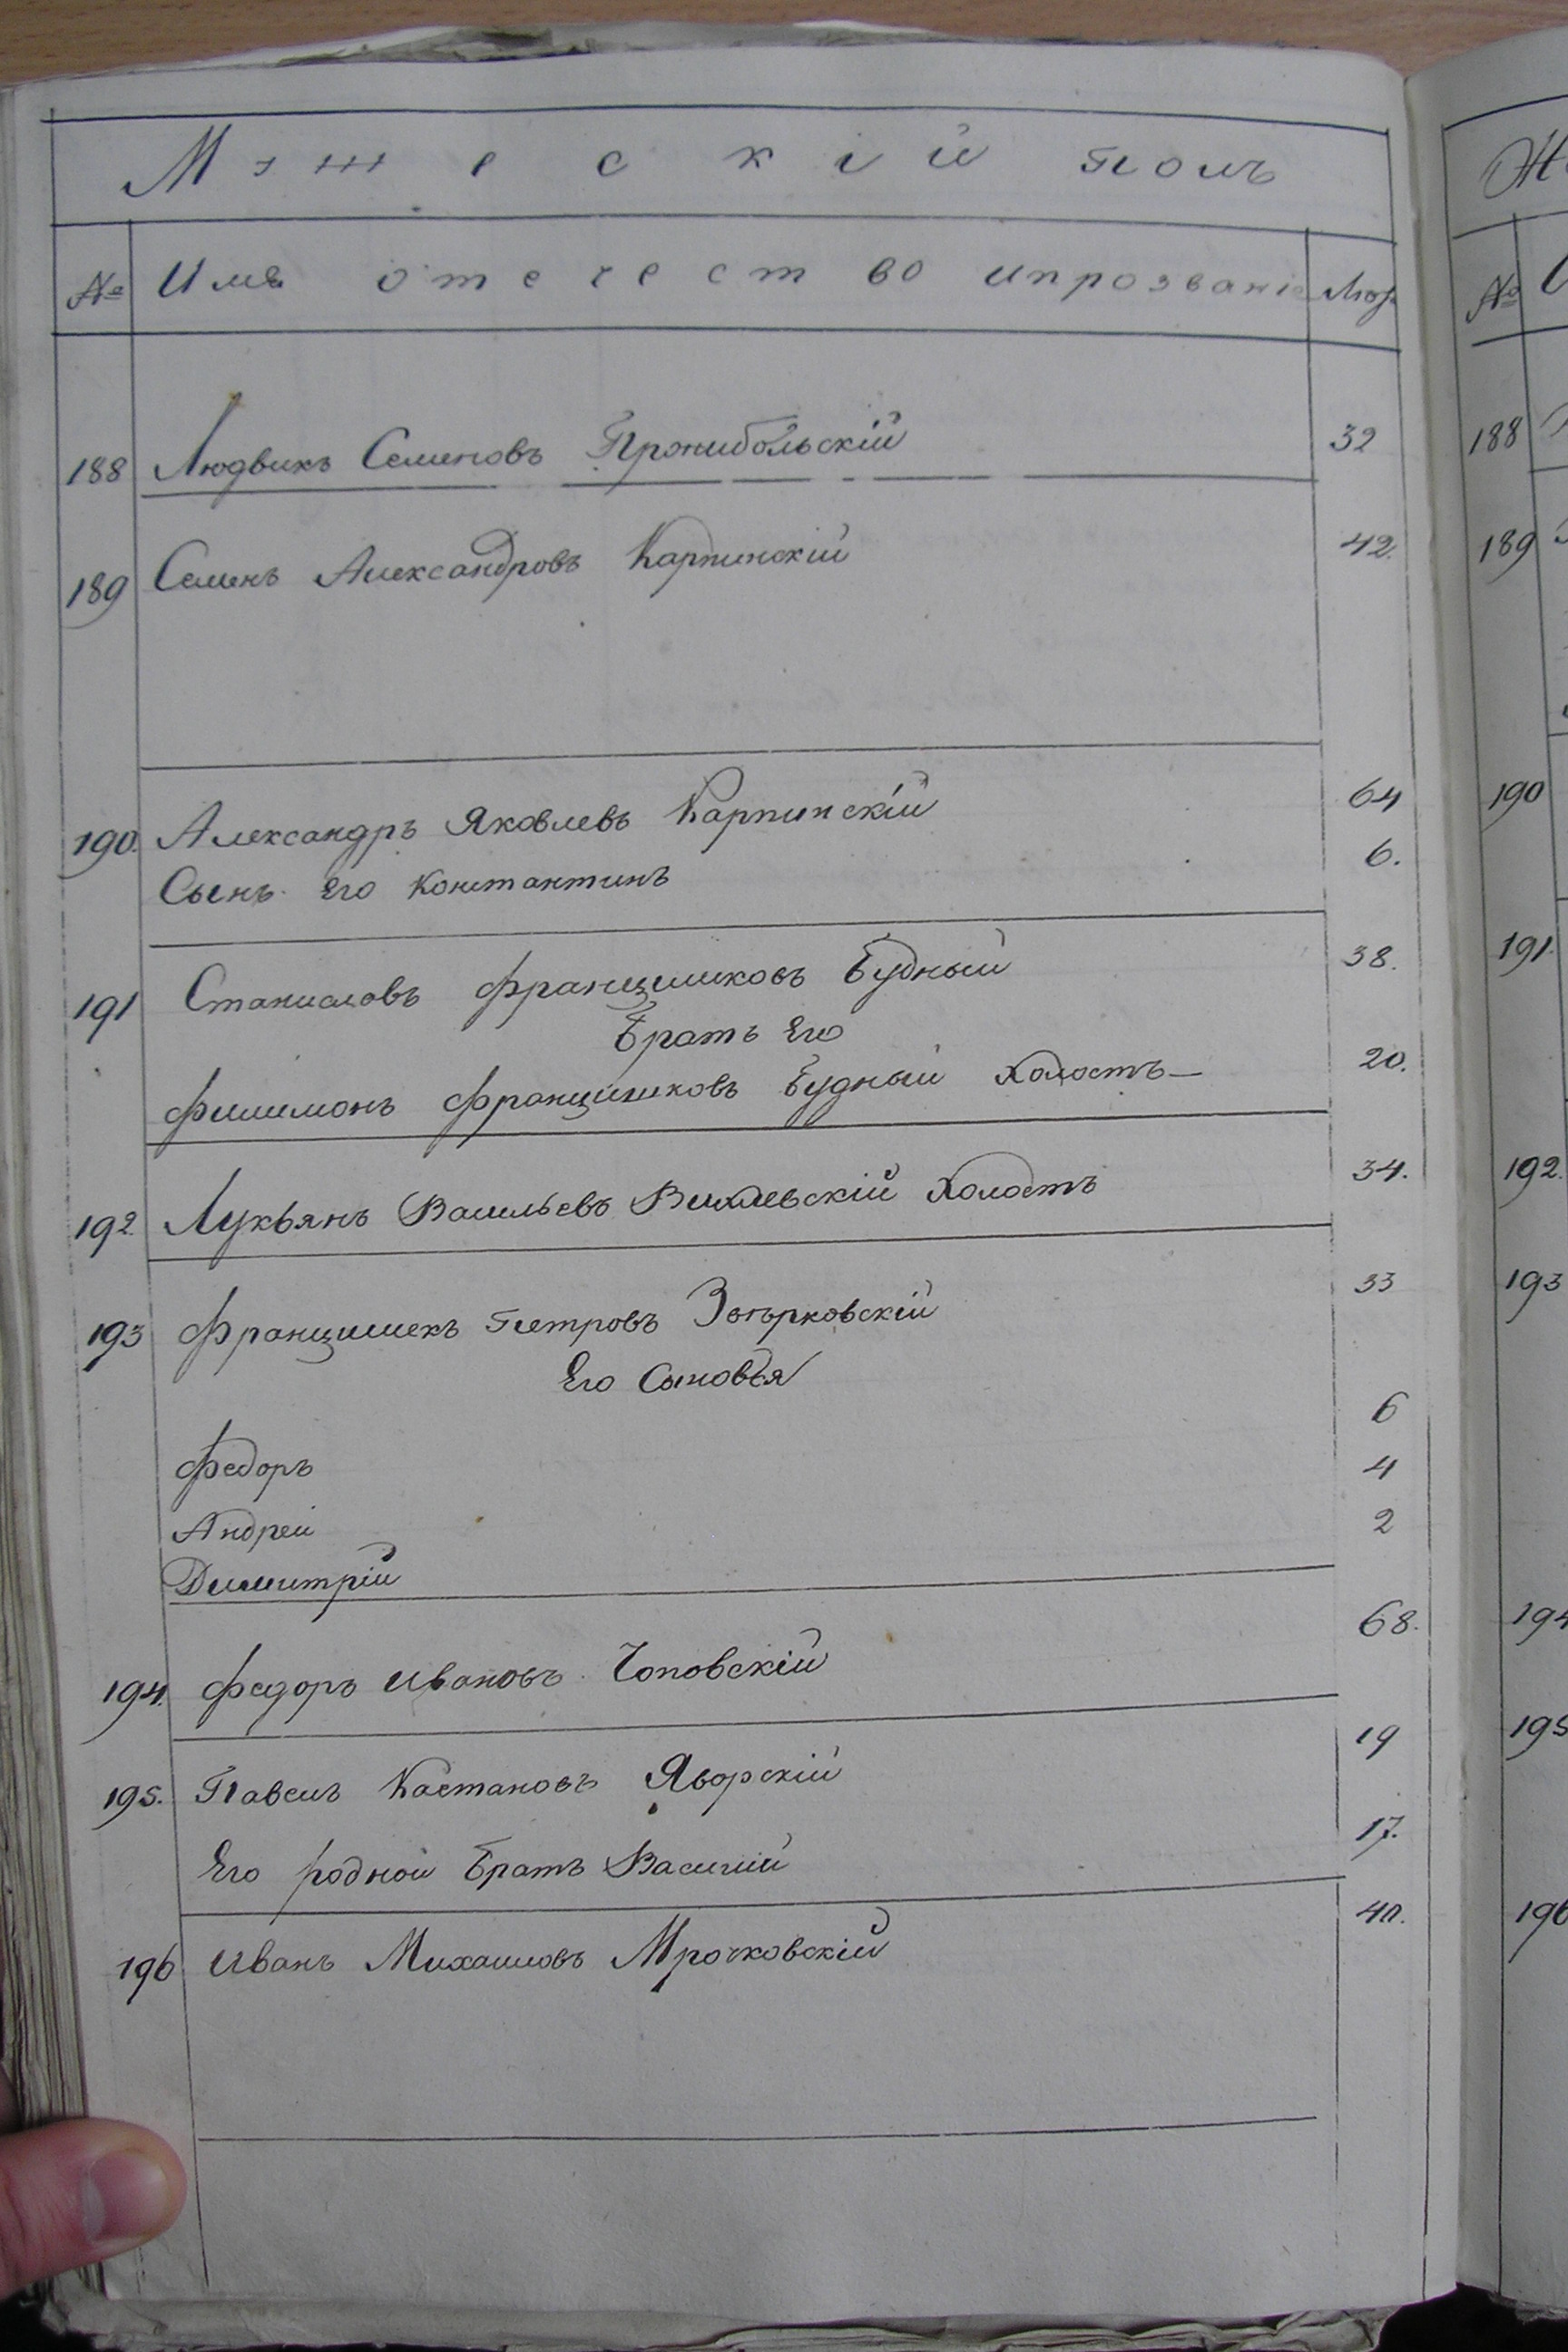 Мужескій полъ
№ Имя отечество ипрозваніе Лѣт
188 Людвикъ Семеновъ Пржибольскій 32
189 Семенъ Александровъ Карпинскій 42.
190. Александръ Яковлевъ Карпинскій 64
Сынъ Его Константинъ 6.
191 Станиславъ Францишковъ Будный 38.
Братъ Его
Филимонъ Францишковъ Будный Холостъ— 20.
192. Лукьянъ Васильевъ Вихлевскій Холостъ 34.
193 Францишекъ Петровъ 33
Его Сыновья
Федоръ 6
Андрей 4
Димитрій 2
194. Федоръ Ивановъ Чоповскій 68.
195. Павелъ Каетановъ Яворскій 19
Его родной Братъ Василій 17.
196 Иванъ Михаиловъ Мрочковскій 40.
Ж
№
188
189
190
191.
192.
193
194
195
196